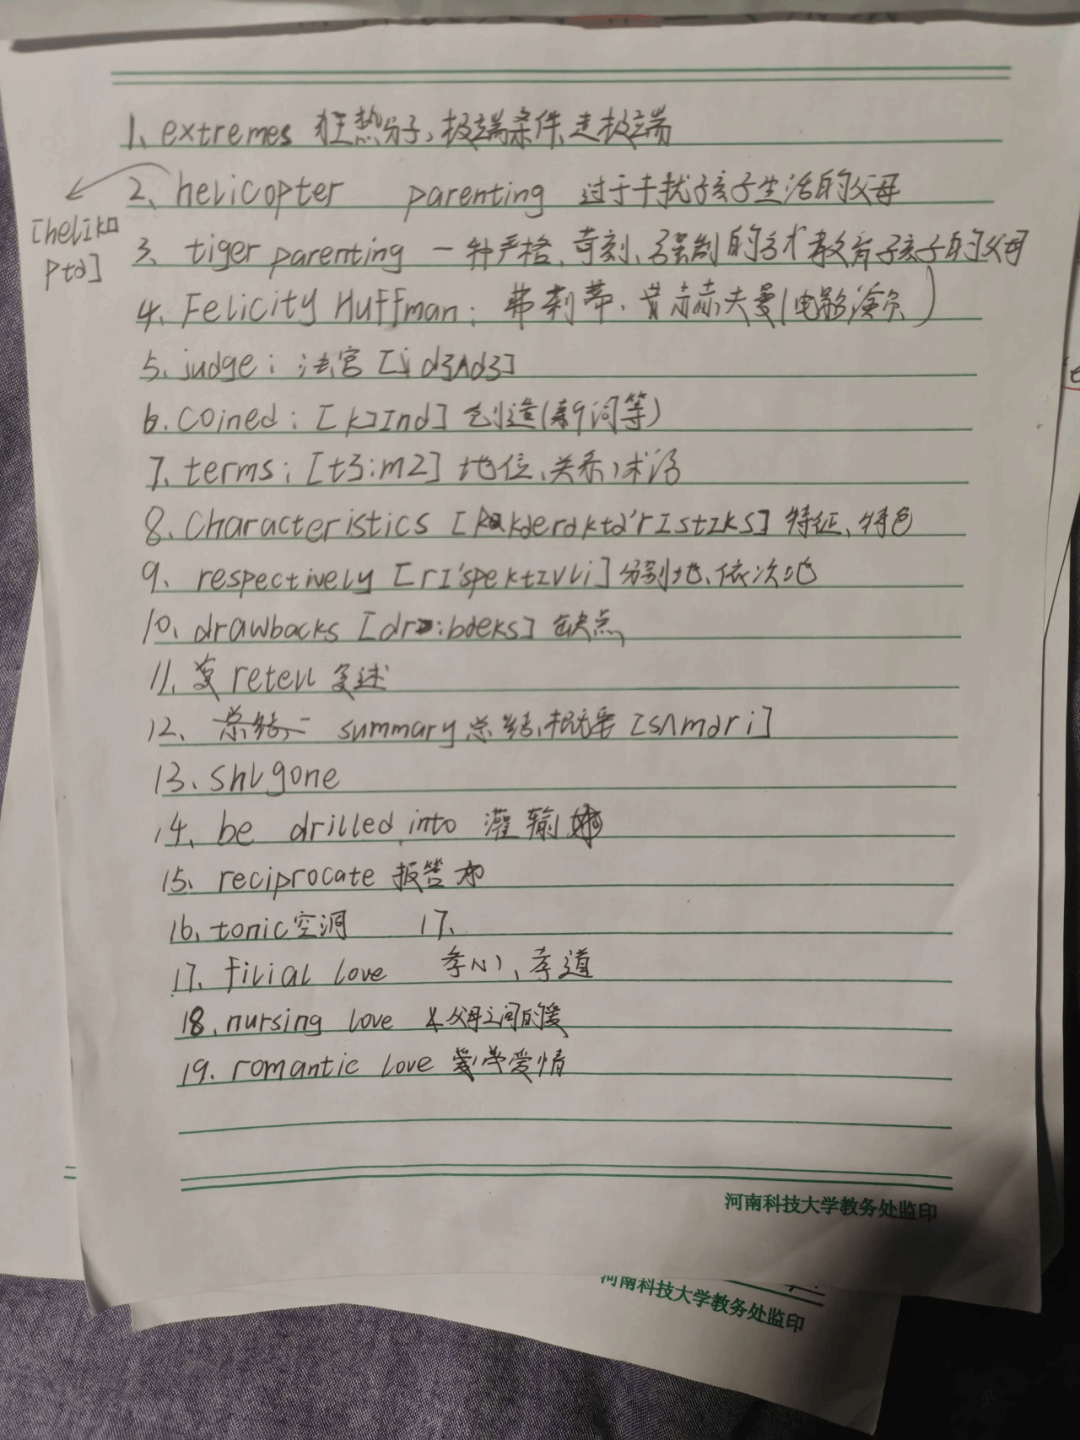 1、extremes 狂热分子，极端条件，走极端
2、helicopter parenting 过于干扰孩子生活的父母
[helɪkɒ
ptə]
3、tiger parenting 一种严格、苛刻、强制的方式教育孩子的父母
4、Felicity Huffman： 弗莉蒂·霍赫夫曼(电影演员)
5、judge： 法官 [dʒʌdʒ]
6、coined：[kɔɪnd] 创造(新词等)
7、terms；[tɜ:mz] 地位、关系，术语
8、Characteristics [kærəktə'rɪstɪks] 特征、特色
9、respectively [rɪ'spektɪvli] 分别地、依次地
10、drawbacks [drɔ:bæks] 缺点
11、retell 复述
12、summary 总结，概要 [sʌməri]
13、shlgone
14、be drilled into 灌输
15、reciprocate 报答
16、tonic 空洞 17、
17、filial love 孝心、孝道
18、nursing love 父母之间的爱
19、romantic love 爱情
河南科技大学教务处监印
河南科技大学教务处监印